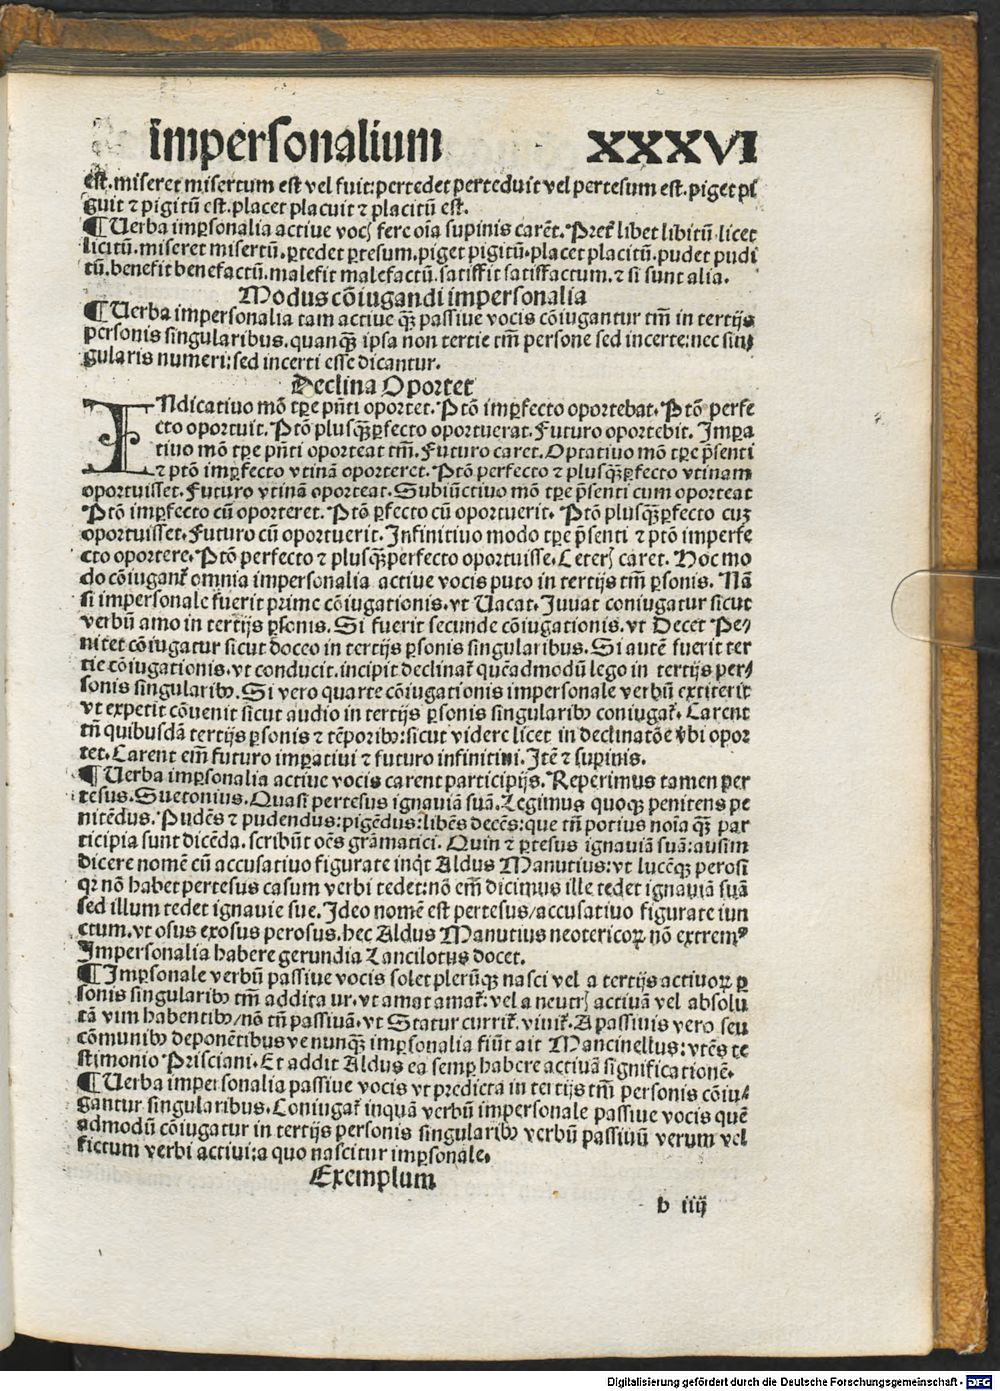 impersonalium XXXVI
est. miseret misertum est vel fuit: pertedet perteduit vel pertesum est. piget pi
guit ⁊ pigitū est. placet placuit ⁊ placitū est.
¶ Uerba imꝑsonalia actiue vocꝭ fere oīa supinis carēt. Pret̄ libet libitū licet
licitū. miseret misertū. ꝑtedet ꝑtesum. piget pigitū. placet placitū. pudet pudi
tū. benefit benefactū. malefit malefactū. satiffit satiffactum. ⁊ si sunt alia.
Modus cōiugandi impersonalia
¶ Uerba impersonalia tam actiue qꝫ passiue vocis cōiugantur tm̄ in tertijs
personis singularibus. quanqꝫ ipsa non tertie tm̄ persone sed incerte: nec sin⸗
gularis numeri: sed incerti esse dicantur.
Declina Oportet
INdicatiuo mō tꝑe pn̄ti oportet. Ptō imꝑfecto oportebat. Ptō perfe
cto oportuit. Ptō plusqꝫꝑfecto oportuerat. Futuro oportebit. Imꝑa
tiuo mō tꝑe pn̄ti oporteat tm̄. Futuro caret. Optatiuo mō tꝑe p̄senti
⁊ ptō imꝑfecto vtinā oporteret. Ptō perfecto ⁊ plusqꝫꝑfecto vtinam
oportuisset. Futuro vtinā oporteat. Subiūctiuo mō tꝑe p̄senti cum oporteat
Ptō imꝑfecto cū oporteret. Ptō ꝑfecto cū oportuerit. Ptō plusqꝫꝑfecto cuꝫ
oportuisset. Futuro cū oportuerit. Infinitiuo modo tꝑe p̄senti ⁊ ptō imperfe
cto oportere. Ptō perfecto ⁊ plusqꝫperfecto oportuisse. Ceterꝭ caret. Hoc mo
do cōiugant̄ omnia impersonalia actiue vocis puto in tertijs tm̄ ꝑsonis. Nā
si impersonale fuerit prime cōiugationis. vt Uacat. Iuuat coniugatur sicut
verbū amo in tertijs ꝑsonis. Si fuerit secunde cōiugationis. vt Decet Pe⸗
nitet cōiugatur sicut doceo in tertijs ꝑsonis singularibus. Si autē fuerit ter
tie cōiugationis. vt conducit. incipit declinat̄ quēadmodū lego in tertijs per⸗
sonis singularibꝰ. Si vero quarte cōiugationis impersonale verbū extiterit
vt expetit cōuenit sicut audio in tertijs ꝑsonis singularibꝰ coniugat̄. Carent
tn̄ quibusdā tertijs ꝑsonis ⁊ tēporibꝰ: sicut videre licet in declinatōe v̄bi opor
tet. Carent em̄ futuro imꝑatiui ⁊ futuro infinitiui. Itē ⁊ supinis.
¶ Uerba imꝑsonalia actiue vocis carent participijs. Reperimus tamen per
tesus. Suetonius. Quasi pertesus ignauiā suā. Legimus quoqꝫ penitens pe
nitēdus. Pudēs ⁊ pudendus: pigēdus: libēs decēs: que tn̄ potius noīa qꝫ par
ticipia sunt dicēda. scribūt oēs grāmatici. Quin ⁊ ꝑtesus ignauiā suā: ausim
dicere nomē cū accusatiuo figurate inq̇t Aldus Manutius: vt lucēqꝫ perosi
qꝛ nō habet pertesus casum verbi tedet: nō em̄ dicimus ille tedet ignauiā suā
sed illum tedet ignauie sue. Ideo nomē est pertesus/ accusatiuo figurate iun
ctum. vt osus exosus perosus. hec Aldus Manutius neotericoꝝ nō extremꝰ
Impersonalia habere gerundia Lancilotus docet.
¶ Imꝑsonale verbū passiue vocis solet plerūqꝫ nasci vel a tertijs actiuoꝝ ꝑ
sonis singularibꝰ tm̄ addita ur. vt amat amat̄: vel a neutrꝭ actiuā vel absolu
tā vim habentibꝰ/ nō tn̄ passiuā. vt Statur currit̄. viuit̄. A passiuis vero seu
cōmunibꝰ deponētibusve nunqꝫ imꝑsonalia fiūt ait Mancinellus: vtēs te
stimonio Prisciani. Et addit Aldus ea semꝑ habere actiuā significationē.
¶ Uerba impersonalia passiue vocis vt predicta in tertijs tm̄ personis cōiu⸗
gantur singularibus. Coniugat̄ inquā verbū impersonale passiue vocis quē
admodū cōiugatur in tertijs personis singularibꝰ verbū passiuū verum vel
fictum verbi actiui: a quo nascitur imꝑsonale.
Exemplum
b iiij
Digitalisierung gefördert durch die Deutsche Forschungsgemeinschaft - DFG